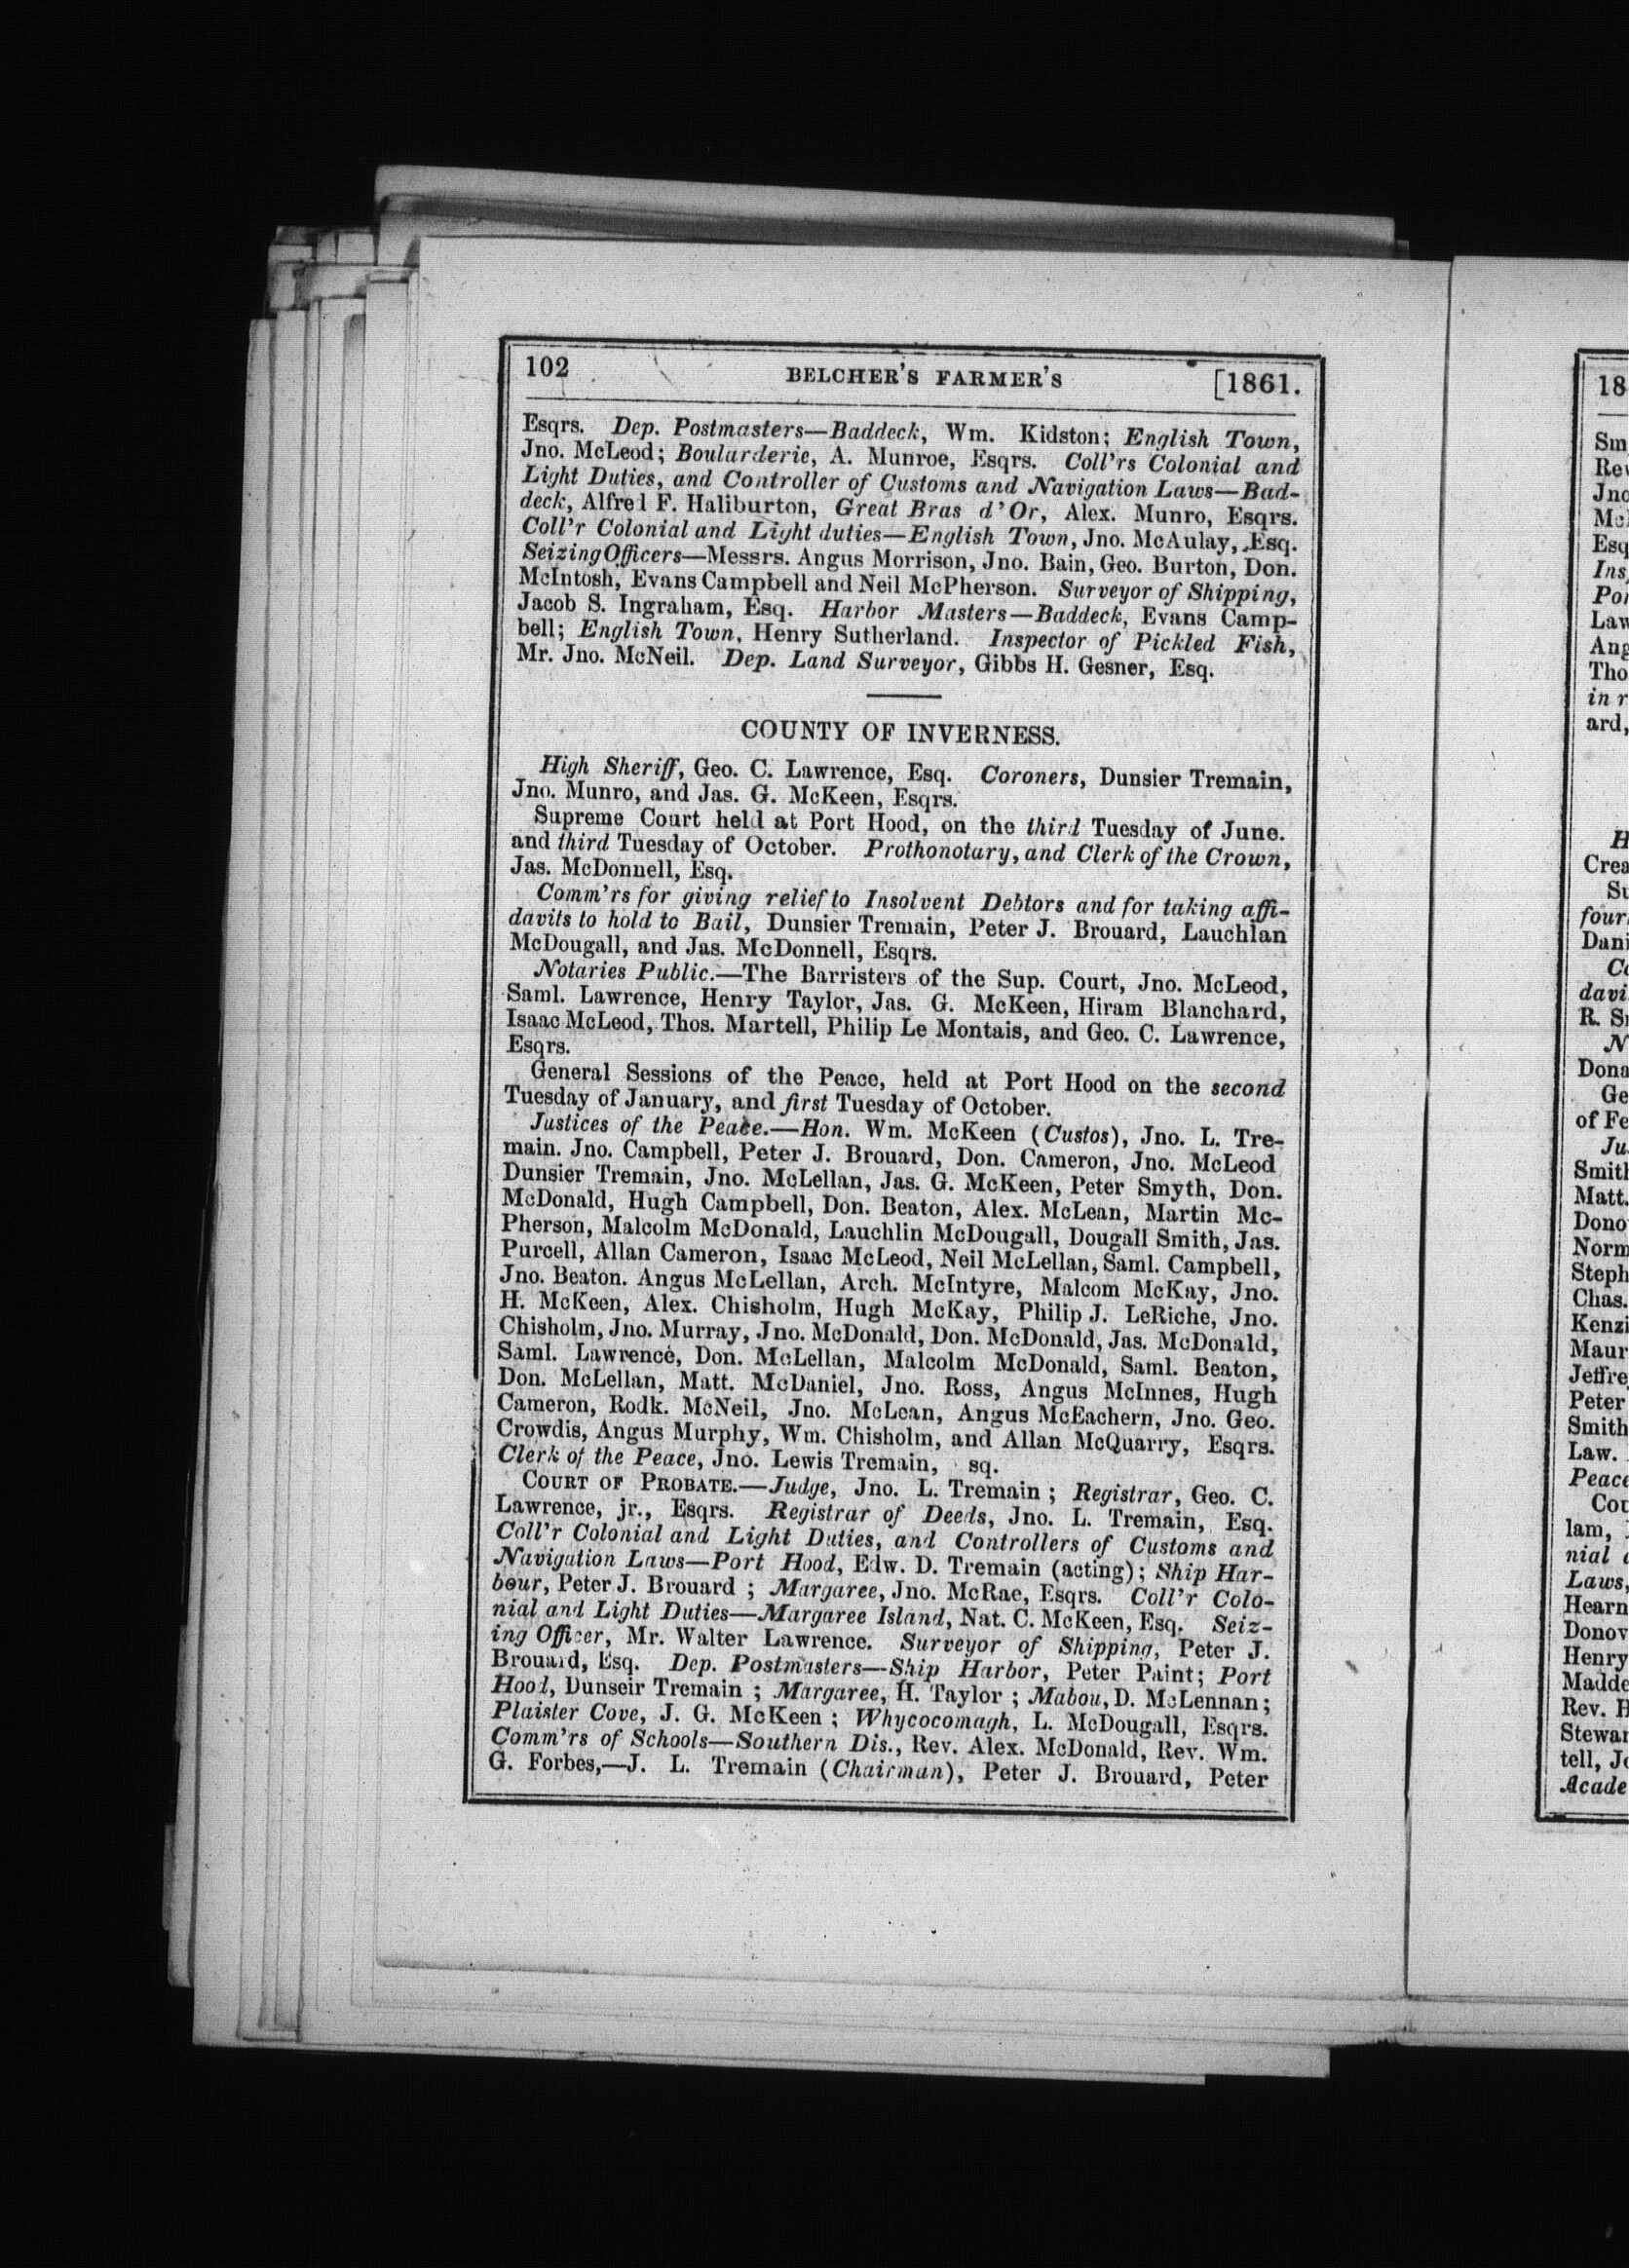 102 BELCHER'S FARMER'S [1861.
Esqrs. Dep. Postmasters—Baddeck, Wm. Kidston; English Town,
Jno. McLeod; Boularderie, A. Munroe, Esqrs. Coll'rs Colonial and
Light Duties, and Controller of Customs and Navigation Laws—Bad-
deck, Alfred F. Haliburton, Great Bras d'Or, Alex. Munro, Esqrs.
Coll'r Colonial and Light duties—English Town, Jno. McAulay, Esq.
Seizing Officers—Messrs. Angus Morrison, Jno. Bain, Geo. Burton, Don.
McIntosh, Evans Campbell and Neil McPherson. Surveyor of Shipping,
Jacob S. Ingraham, Esq. Harbor Masters—Baddeck, Evans Camp-
bell; English Town, Henry Sutherland. Inspector of Pickled Fish,
Mr. Jno. McNeil. Dep. Land Surveyor, Gibbs H. Gesner, Esq.
COUNTY OF INVERNESS.
High Sheriff, Geo. C. Lawrence, Esq. Coroners, Dunsier Tremain,
Jno. Munro, and Jas. G. McKeen, Esqrs.
Supreme Court held at Port Hood, on the third Tuesday of June.
and third Tuesday of October. Prothonotary, and Clerk of the Crown,
Jas. McDonnell, Esq.
Comm'rs for giving relief to Insolvent Debtors and for taking affi-
davits to hold to Bail, Dunsier Tremain, Peter J. Brouard, Lauchlan
McDougall, and Jas. McDonnell, Esqrs.
Notaries Public.—The Barristers of the Sup. Court, Jno. McLeod,
Saml. Lawrence, Henry Taylor, Jas. G. McKeen, Hiram Blanchard,
Isaac McLeod, Thos. Martell, Philip Le Montais, and Geo. C. Lawrence,
Esqrs.
General Sessions of the Peace, held at Port Hood on the second
Tuesday of January, and first Tuesday of October.
Justices of the Peace.—Hon. Wm. McKeen (Custos), Jno. L. Tre-
main. Jno. Campbell, Peter J. Brouard, Don. Cameron, Jno. McLeod
Dunsier Tremain, Jno. McLellan, Jas. G. McKeen, Peter Smyth, Don.
McDonald, Hugh Campbell, Don. Beaton, Alex. McLean, Martin Mc-
Pherson, Malcolm McDonald, Lauchlin McDougall, Dougall Smith, Jas.
Purcell, Allan Cameron, Isaac McLeod, Neil McLellan, Saml. Campbell,
Jno. Beaton. Angus McLellan, Arch. McIntyre, Malcom McKay, Jno.
H. McKeen, Alex. Chisholm, Hugh McKay, Philip J. LeRiche, Jno.
Chisholm, Jno. Murray, Jno. McDonald, Don. McDonald, Jas. McDonald,
Saml. Lawrence, Don. McLellan, Malcolm McDonald, Saml. Beaton,
Don. McLellan, Matt. McDaniel, Jno. Ross, Angus McInnes, Hugh
Cameron, Rodk. McNeil, Jno. McLean, Angus McEachern, Jno. Geo.
Crowdis, Angus Murphy, Wm. Chisholm, and Allan McQuarry, Esqrs.
Clerk of the Peace, Jno. Lewis Tremain, sq.
COURT OF PROBATE.—Judge, Jno. L. Tremain; Registrar, Geo. C.
Lawrence, jr., Esqrs. Registrar of Deeds, Jno. L. Tremain, Esq.
Coll'r Colonial and Light Duties, and Controllers of Customs and
Navigation Laws—Port Hood, Edw. D. Tremain (acting); Ship Har-
bour, Peter J. Brouard; Margaree, Jno. McRae, Esqrs. Coll'r Colo-
nial and Light Duties—Margaree Island, Nat. C. McKeen, Esq. Seiz-
ing Officer, Mr. Walter Lawrence. Surveyor of Shipping, Peter J.
Brouard, Esq. Dep. Postmasters—Ship Harbor, Peter Paint; Port
Hood, Dunseir Tremain; Margaree, H. Taylor; Mabou, D. McLennan;
Plaister Cove, J. G. McKeen; Whycocomagh, L. McDougall, Esqrs.
Comm'rs of Schools—Southern Dis., Rev. Alex. McDonald, Rev. Wm.
G. Forbes,—J. L. Tremain (Chairman), Peter J. Brouard, Peter